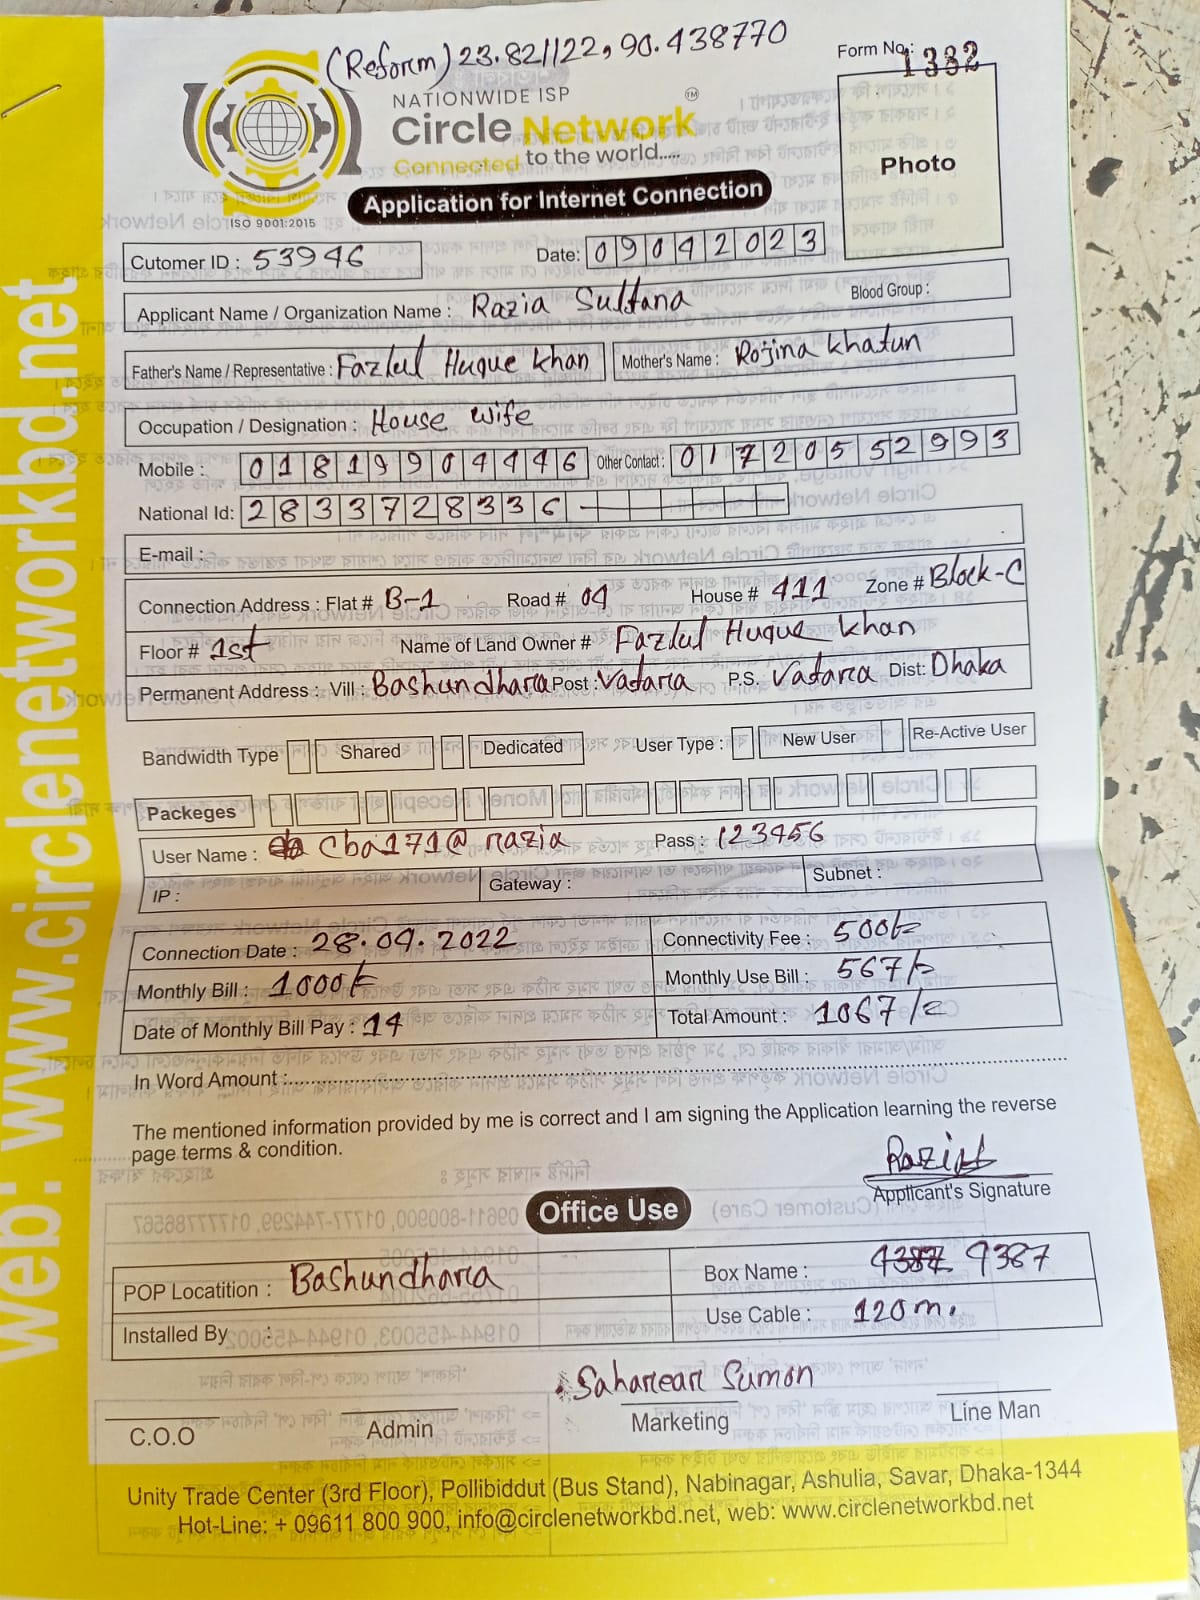 (Reform) 23.821122, 90.438770
Form No.: 1332
NATIONWIDE ISP
Circle Network TM
Connected to the world.....
Photo
ISO 9001:2015
Application for Internet Connection
Cutomer ID : 53946
Date: 09042023
Applicant Name / Organization Name : Razia Sultana
Blood Group :
Father's Name / Representative : Fazlul Huque Khan
Mother's Name : Rojina Khatun
Occupation / Designation : House wife
Mobile : 01819904446
Other Contact : 01720552993
National Id: 2833728336
E-mail :
Connection Address : Flat # B-1 Road # 04 House # 411 Zone # Block-C
Floor # 1st Name of Land Owner # Fazlul Huque Khan
Permanent Address : Vill : Bashundhara Post : Vatara P.S. Vatara Dist: Dhaka
Bandwidth Type Shared Dedicated User Type : New User Re-Active User
Packeges
User Name : cba171@razia Pass : 123456
IP : Gateway : Subnet :
Connection Date : 28.09.2022 Connectivity Fee : 500/=
Monthly Bill : 1000/= Monthly Use Bill : 567/=
Date of Monthly Bill Pay : 14 Total Amount : 1067/=
In Word Amount :
The mentioned information provided by me is correct and I am signing the Application learning the reverse
page terms & condition.
Razia
Applicant's Signature
Office Use
POP Locatition : Bashundhara Box Name : 4387 4387
Installed By : Use Cable : 120m.
Saharear Sumon
C.O.O Admin Marketing Line Man
Unity Trade Center (3rd Floor), Pollibiddut (Bus Stand), Nabinagar, Ashulia, Savar, Dhaka-1344
Hot-Line: + 09611 800 900, info@circlenetworkbd.net, web: www.circlenetworkbd.net
web: www.circlenetworkbd.net